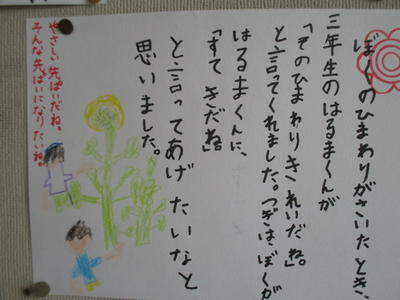 ぼくのひまわりがさいたとき、
三年生のはるまくんが
「そのひまわりきれいだね。」
と言ってくれました。つぎは、ぼくが
はるまくんに、
「すてきだね。」
と言ってあげたいなと
思いました。
やさしい先ぱいだね。
そんな先ぱいになりたいね。